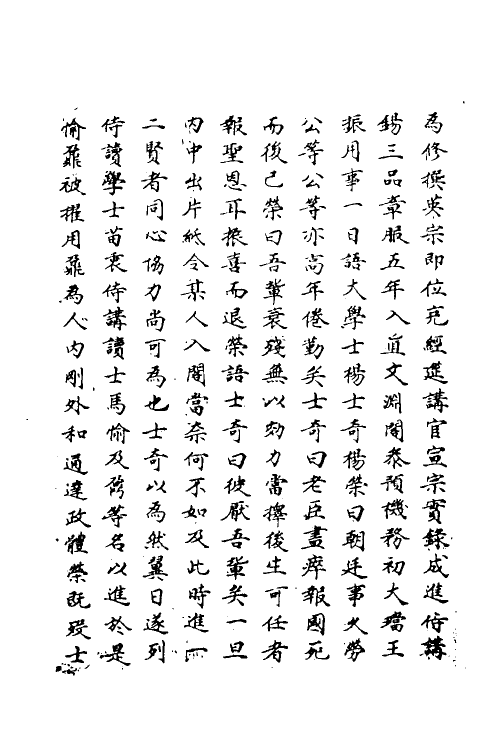 為修撰英宗即位充經筵講官宣宗實錄成進侍講
錫三品章服五年入直文淵閣叅預機務初大璫王
振用事一日語大學士楊士奇楊榮曰朝廷事久勞
公等公等亦高年倦勤矣士奇曰老臣盡瘁報國死
而後已榮曰吾輩衰殘無以効力當擇後生可任者
報聖恩耳振喜而退榮語士奇曰彼厭吾輩矣一旦
內中出片紙令某人入閣當奈何不如及此時進一
二賢者同心協力尚可為也士奇以為然翼日遂列
侍讀學士苗衷侍講讀士馬愉及鼐等名以進於是
愉鼐被擢用鼐為人內剛外和通達政體榮既歿士